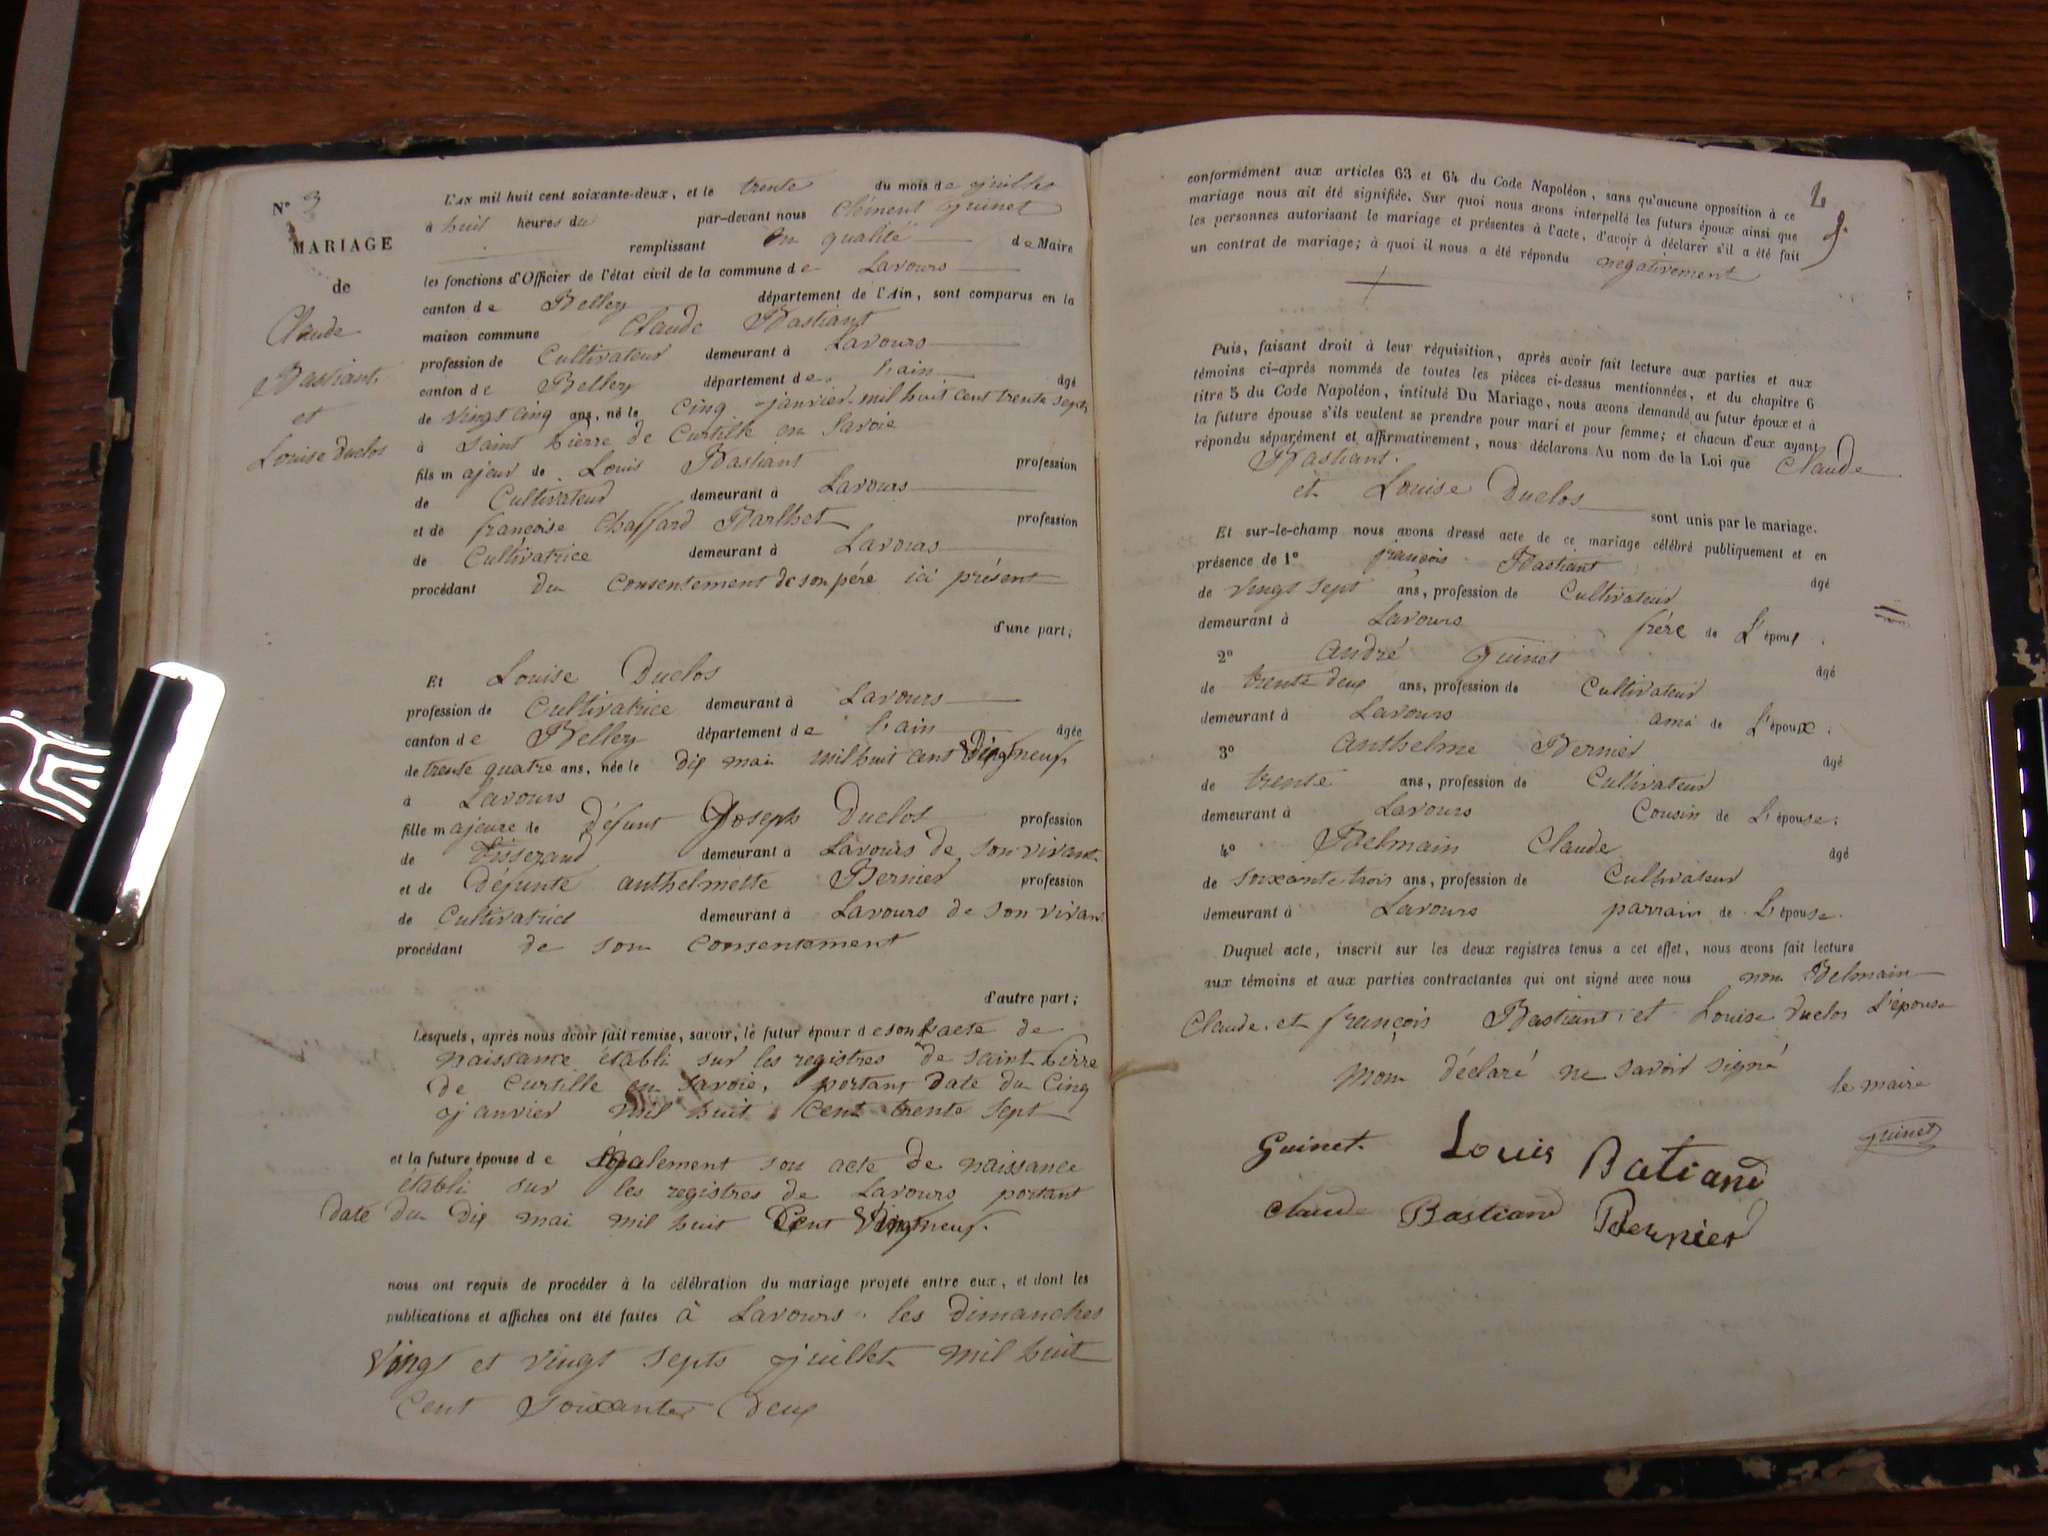 N° 3
MARIAGE
de
Claude
Bastiant
et
Louise Duclos
L'AN mil huit cent soixante-deux, et le trente du mois de juillet
à huit heures du par-devant nous Clément Guinet
remplissant en qualité de Maire
les fonctions d'Officier de l'état civil de la commune de Lavours
canton de Belley département de l'Ain, sont comparus en la
maison commune Claude Bastiant
profession de Cultivateur demeurant à Lavours
canton de Belley département de l'ain âgé
de vingt cinq ans, né le cinq janvier mil huit cent trente sept
à Saint Pierre de Curtille en Savoie
fils majeur de Louis Bastiant profession
de Cultivateur demeurant à Lavours
et de françoise Chaffard Barthet profession
de Cultivatrice demeurant à Lavours
procédant du Consentement de son père ici présent
d'une part;
Et Louise Duclos
profession de Cultivatrice demeurant à Lavours
canton de Belley département de l'ain âgée
de trente quatre ans, née le dix mai mil huit cent vingt neuf
à Lavours
fille majeure de défunt Joseph Duclos profession
de tisserand demeurant à Lavours de son vivant
et de défunte anthelmette Bernier profession
de Cultivatrice demeurant à Lavours de son vivant
procédant de son Consentement
d'autre part;
Lesquels, après nous avoir fait remise, savoir, le futur époux de son acte de
naissance établi sur les registres de saint Pierre
de Curtille en Savoie, portant date du Cinq
janvier mil huit Cent trente sept
et la future épouse de également son acte de naissance
établi sur les registres de Lavours portant
date du dix mai mil huit Cent Vingt neuf.
nous ont requis de procéder à la célébration du mariage projeté entre eux, et dont les
publications et affiches ont été faites à Lavours les dimanches
Vingt et vingt septs juillet mil huit
Cent Soixante deux
conformément aux articles 63 et 64 du Code Napoléon, sans qu'aucune opposition à ce
mariage nous ait été signifiée. Sur quoi nous avons interpellé les futurs époux ainsi que
les personnes autorisant le mariage et présentes à l'acte, d'avoir à déclarer s'il a été fait
un contrat de mariage; à quoi il nous a été répondu negativement
Puis, faisant droit à leur réquisition, après avoir fait lecture aux parties et aux
témoins ci-après nommés de toutes les pièces ci-dessus mentionnées, et du chapitre 6
titre 5 du Code Napoléon, intitulé Du Mariage, nous avons demandé au futur époux et à
la future épouse s'ils veulent se prendre pour mari et pour femme; et chacun d'eux ayant
répondu séparément et affirmativement, nous déclarons Au nom de la Loi que Claude
Bastiant.
et Louise Duclos sont unis par le mariage.
Et sur-le-champ nous avons dressé acte de ce mariage célébré publiquement et en
présence de 1° françois Bastiant âgé
de Vingt sept ans, profession de Cultivateur
demeurant à Lavours frére de L'époux
2° André Guinet âgé
de trente deux ans, profession de Cultivateur
demeurant à Lavours ami de L'époux;
3° Anthelme Bernier âgé
de trente ans, profession de Cultivateur
demeurant à Lavours Cousin de L'épouse;
4° Belmain Claude âgé
de soixante trois ans, profession de Cultivateur
demeurant à Lavours parrain de L'épouse.
Duquel acte, inscrit sur les deux registres tenus à cet effet, nous avons fait lecture
aux témoins et aux parties contractantes qui ont signé avec nous non Belmain
Claude et françois Bastiant et Louise Duclos L'épouse
Mon déclaré ne savoir signé
le maire
Guinet. Louis Batiand Guinet
Claude Bastiand Bernier